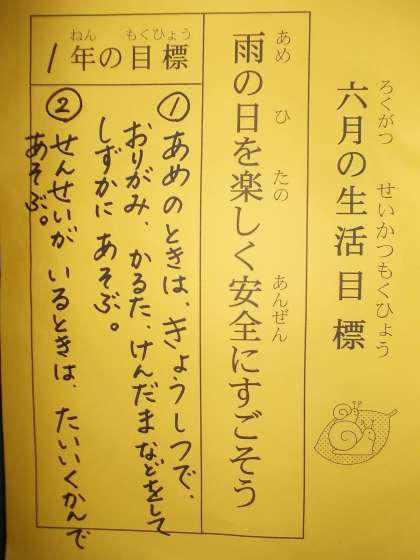 ろくがつ せいかつもくひょう
六月の生活目標
あめ ひ たの あんぜん
雨の日を楽しく安全にすごそう
ねん もくひょう
1年の目標
①あめのときは、きょうしつで、
おりがみ、かるた、けんだまなどをして
しずかに あそぶ。
②せんせいが いるときは、たいいくかんで
あそぶ。